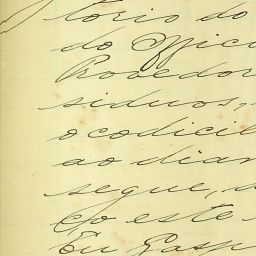 torio do
do Offici
Provedor
siduos,
o codicil
ao diar
segue, 
Co este
Eu Gasp